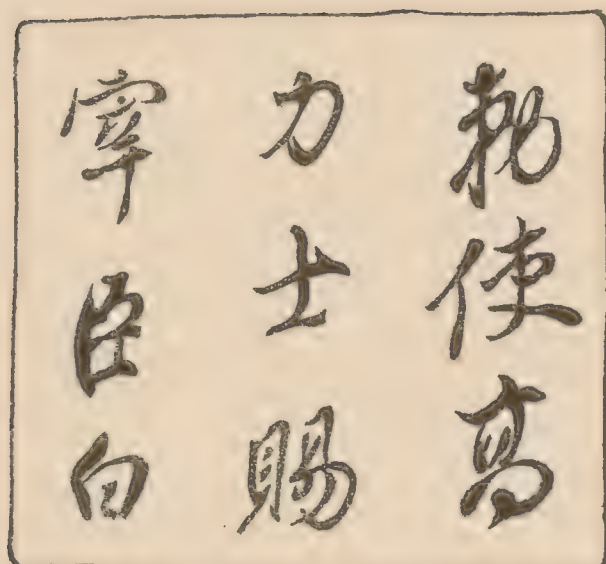 勅使高
力士賜
宰臣白